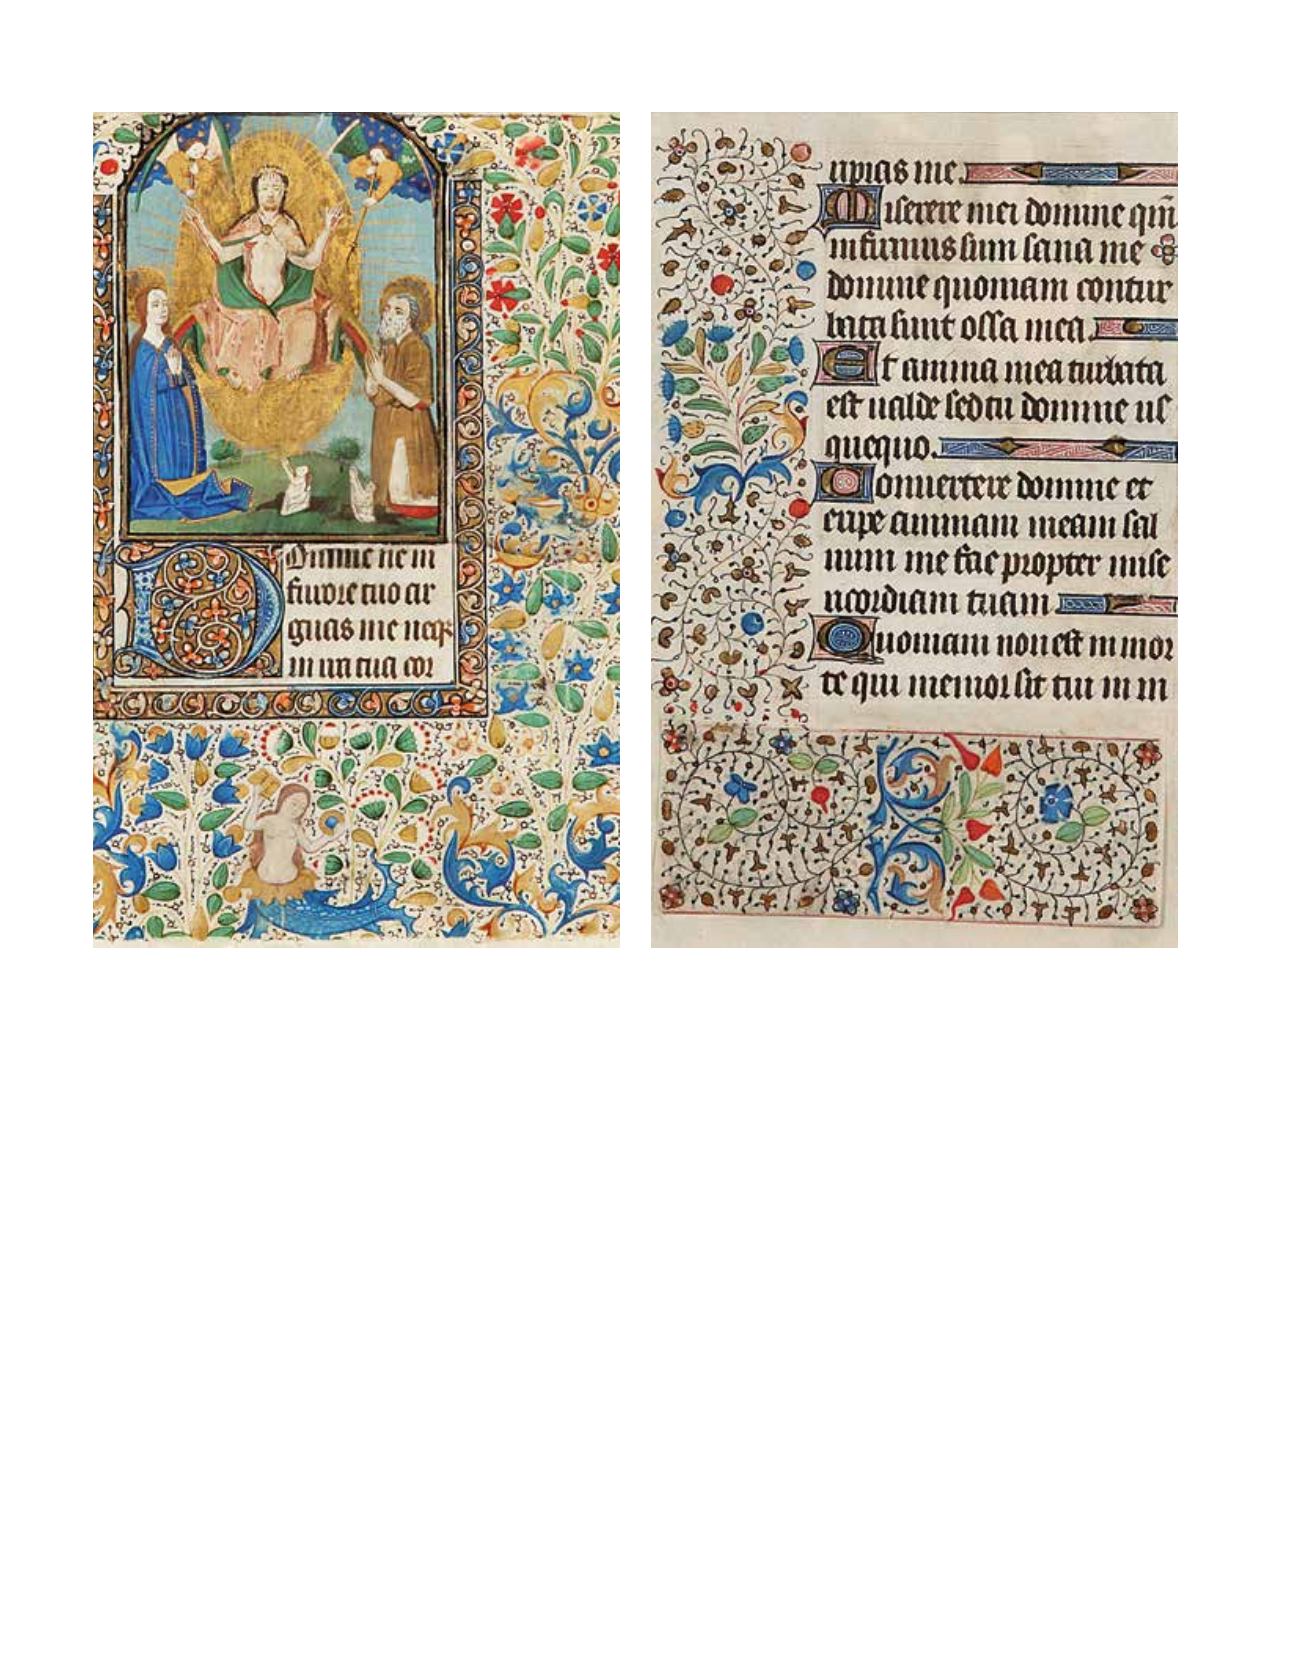 Domine ne in
furore tuo ar
guas me neq;
in ira tua cor
ripias me.
Miserere mei domine qm̄
infirmus sum sana me
domine quoniam contur
bata sunt ossa mea.
Et anima mea turbata
est ualde sed tu domine us
quequo.
Conuertere domine et
eripe animam meam sal
uum me fac propter mise
ricordiam tuam
Quoniam non est in mor
te qui memor sit tui in in